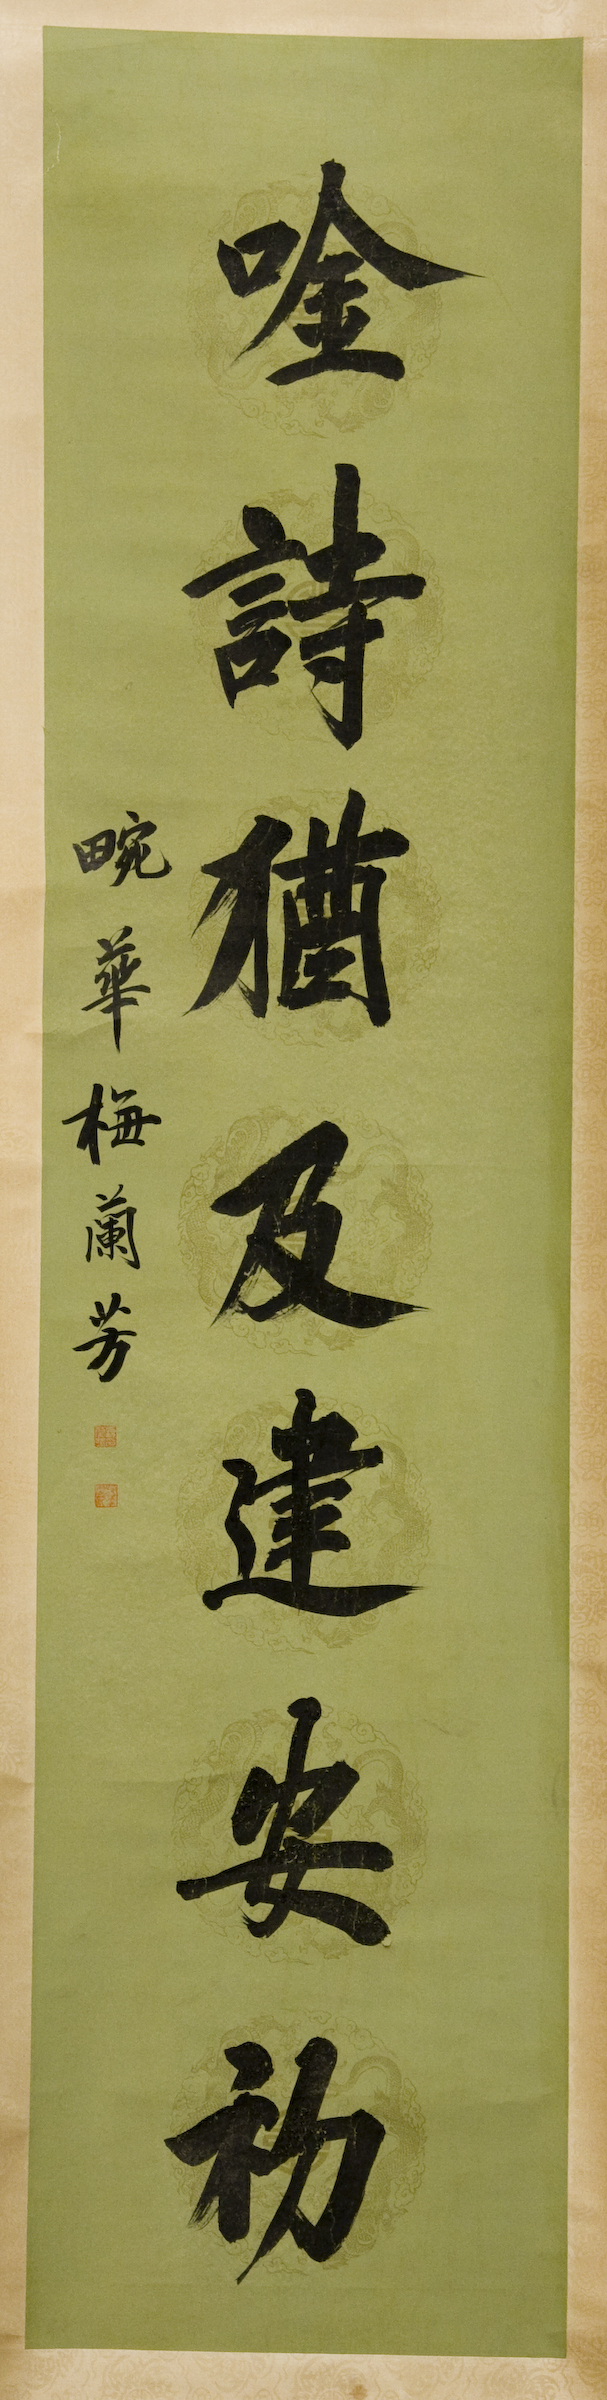 唫詩猶及建安初
畹華梅蘭芳